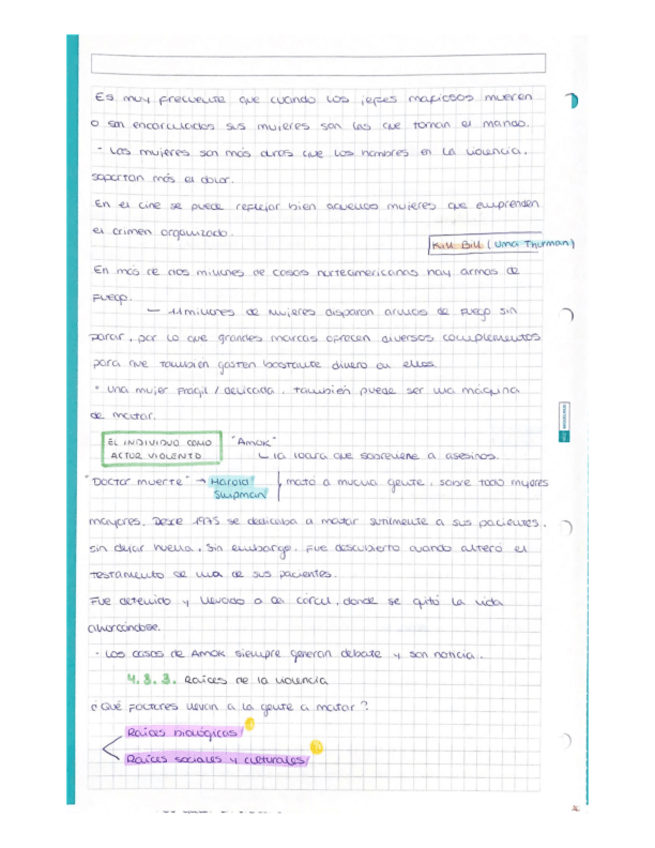 Es muy frecuente que cuando los jefes mafiosos mueren
o son encarcelados sus mujeres son las que toman el mando.
- Las mujeres son más duras que los hombres en la violencia.
soportan más el dolor.
En el cine se puede reflejar bien aquellas mujeres que emprenden
el crimen organizado.
Kill Bill (Uma Thurman)
En más de dos millones de casas norteamericanas hay armas de
fuego.
- 11 millones de mujeres disparan armas de fuego sin
parar, por lo que grandes marcas ofrecen diversos complementos
para que también gasten bastante dinero en ellos.
* Una mujer frágil / delicada, también puede ser una máquina
de matar.
EL INDIVIDUO COMO "Amok"
ACTOR VIOLENTO. la locura que sobreviene a asesinos.
"Doctor muerte" → Harold mató a mucha gente, sobre todo mujeres
Shipman
mayores. Desde 1975 se dedicaba a matar sutilmente a sus pacientes,
sin dejar huella. Sin embargo, fue descubierto cuando alteró el
testamento de una de sus pacientes.
Fue detenido y llevado a la cárcel, donde se quitó la vida
ahorcándose.
- Los casos de Amok siempre generan debate y son noticia.
4.3.3. Raíces de la violencia
¿Qué factores llevan a la gente a matar?
Raíces biológicas
Raíces sociales y culturales